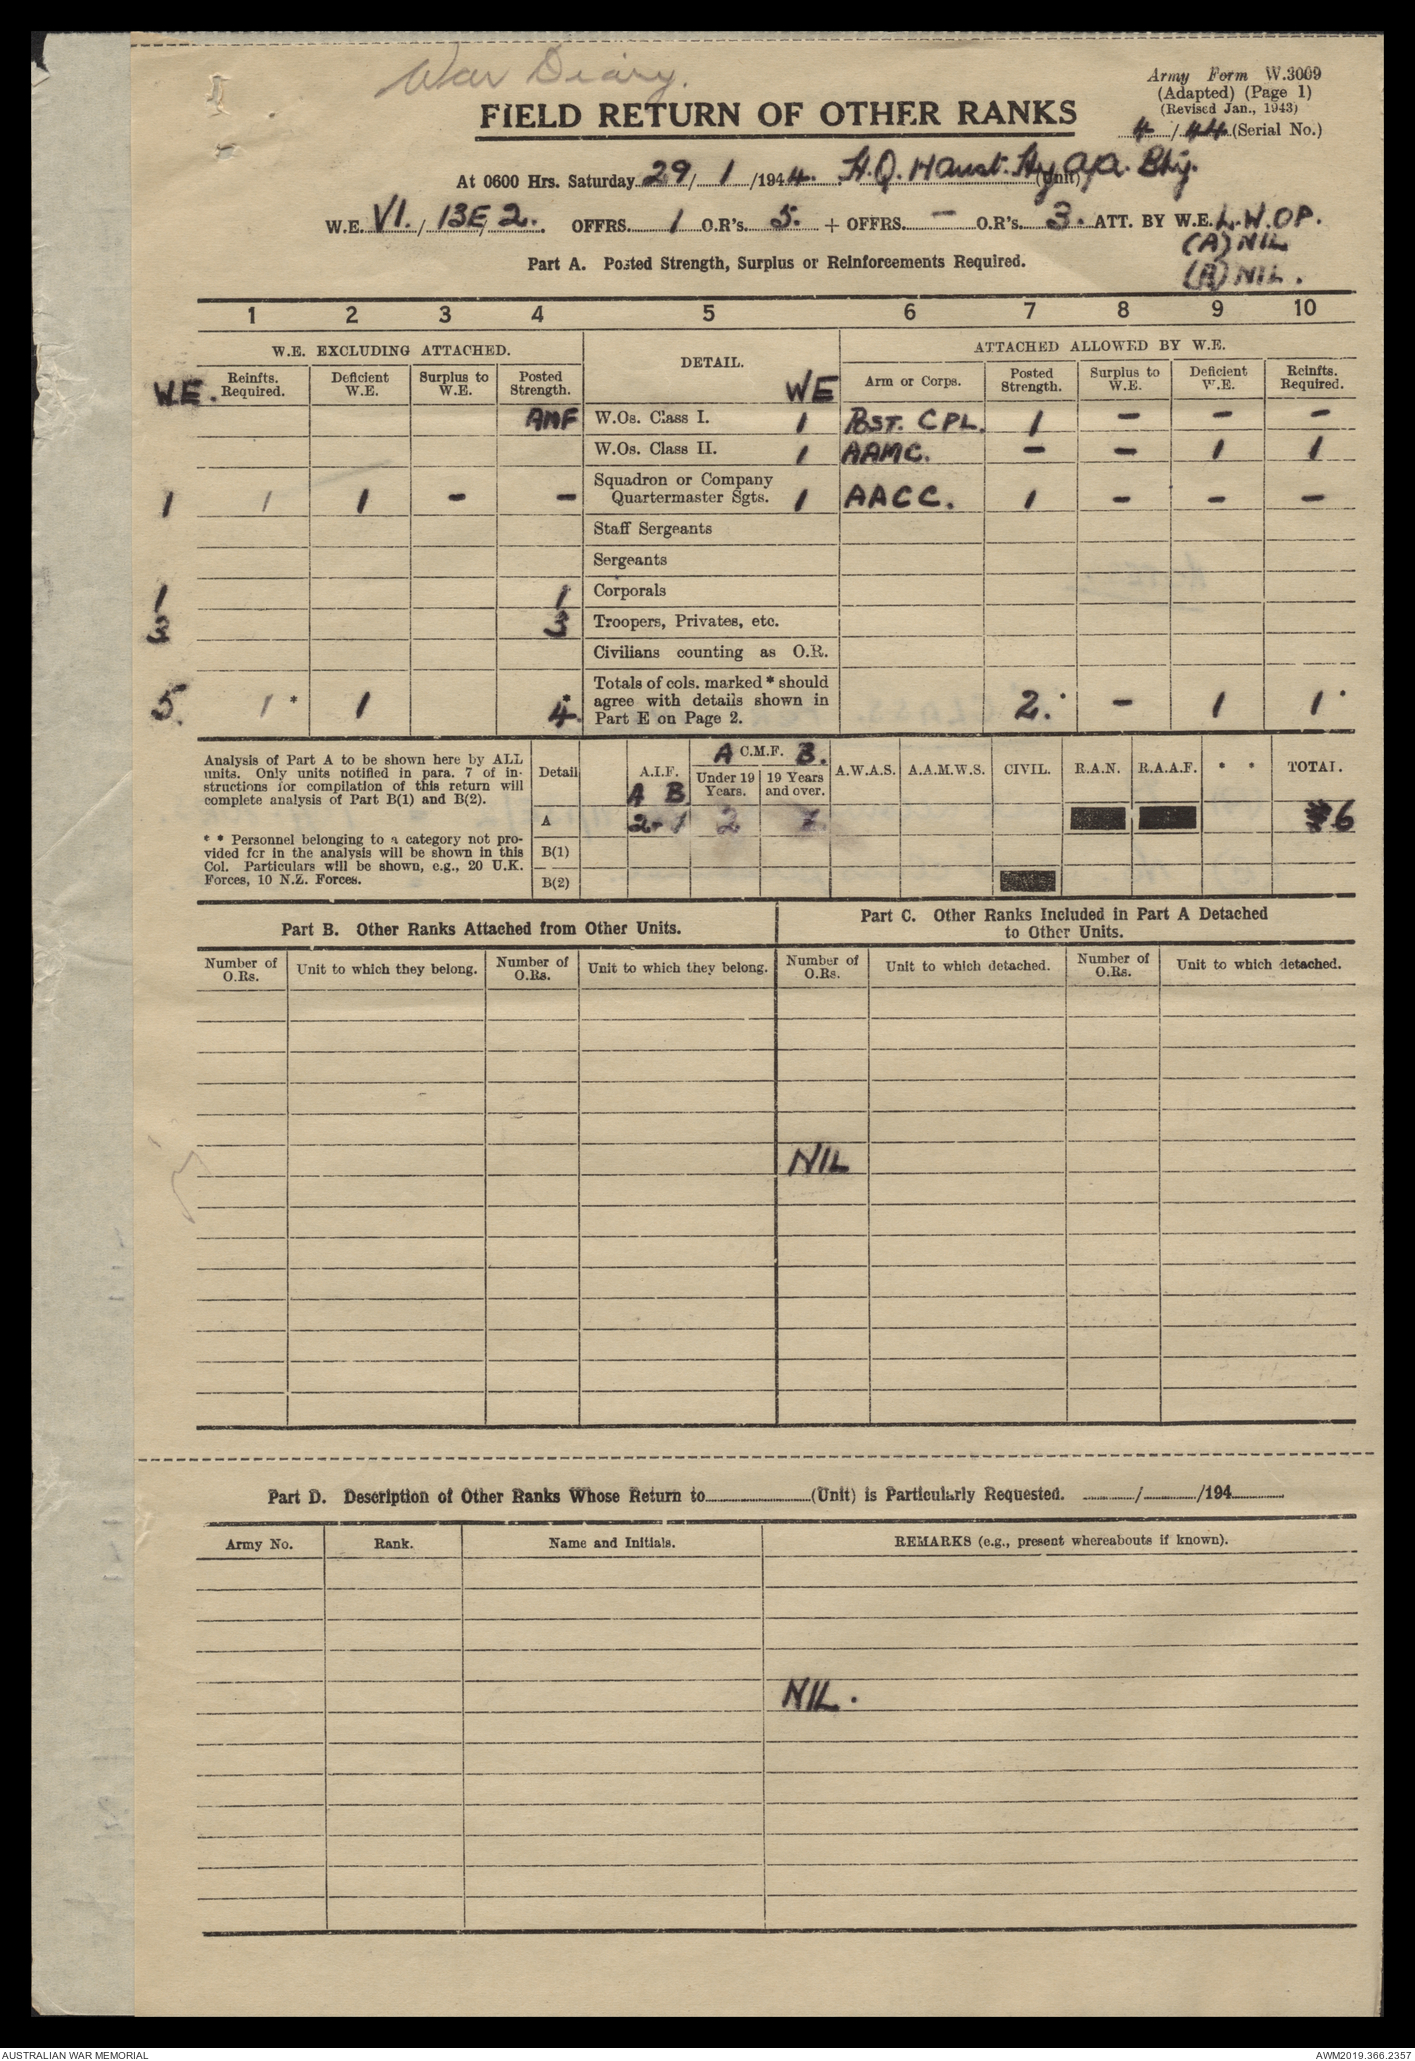 War Diary.
Army Form W.3009
(Adapted) (Page 1)
(Revised Jan., 1943)
FIELD RETURN OF OTHER RANKS
4/44 (Serial No.)
At 0600 Hrs. Saturday 29/1/1944. H.Q. H aust. Hy (Unit) Bty.
W.E. VI./13E/2. OFFRS. 1 O.R's. 5. + OFFRS. — O.R's. 3. ATT. BY W.E. L.W.OP.
(A) NIL
Part A. Posted Strength, Surplus or Reinforcements Required.
NIL.
1 2 3 4 5 6 7 8 9 10
W.E. EXCLUDING ATTACHED. DETAIL. ATTACHED ALLOWED BY W.E.
W.E. Reinfts. Required. Deficient W.E. Surplus to W.E. Posted Strength. WE Arm or Corps. Posted Strength. Surplus to W.E. Deficient W.E. Reinfts. Required.
AMF W.Os. Class I. 1 POST. CPL. 1 — — —
W.Os. Class II. 1 AAMC. — — 1 1
1 1 1 — — Squadron or Company Quartermaster Sgts. 1 AACC. 1 — — —
Staff Sergeants
Sergeants
1 1 Corporals
3 3 Troopers, Privates, etc.
Civilians counting as O.R.
5. 1 * 1 * 4. Totals of cols. marked * should agree with details shown in Part E on Page 2. 2. — 1 1
Analysis of Part A to be shown here by ALL
units. Only units notified in para. 7 of in-
structions for compilation of this return will
complete analysis of Part B(1) and B(2).
* * Personnel belonging to a category not pro-
vided for in the analysis will be shown in this
Col. Particulars will be shown, e.g., 20 U.K.
Forces, 10 N.Z. Forces.
Detail A.I.F. A B A C.M.F. B. Under 19 Years. 19 Years and over. A.W.A.S. A.A.M.W.S. CIVIL. R.A.N. R.A.A.F. * * TOTAL.
A 2 1 2 6
B(1)
B(2)
Part B. Other Ranks Attached from Other Units.
Part C. Other Ranks Included in Part A Detached
to Other Units.
Number of O.Rs. Unit to which they belong. Number of O.Rs. Unit to which they belong. Number of O.Rs. Unit to which detached. Number of O.Rs. Unit to which detached.
NIL
Part D. Description of Other Ranks Whose Return to (Unit) is Particularly Requested. / /194
Army No. Rank. Name and Initials. REMARKS (e.g., present whereabouts if known).
NIL.
AUSTRALIAN WAR MEMORIAL AWM2019.366.2357